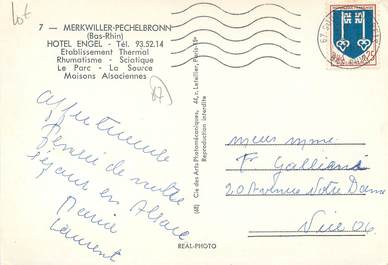 Lot
7 — MERKWILLER-PECHELBRONN
(Bas-Rhin)
HOTEL ENGEL - Tél. 93.52.14
Etablissement Thermal
Rhumatisme - Sciatique
Le Parc - La Source
Maisons Alsaciennes
67
Affectueuse
Pensée de notre
séjour en Alsace
Laurent
(68) Cie des Arts Photomécaniques, 44, r. Letellier, Paris-15e
Reproduction interdite
REAL-PHOTO
meur mme
F Galliani
20 Avenue Notre Dame
Nice 06